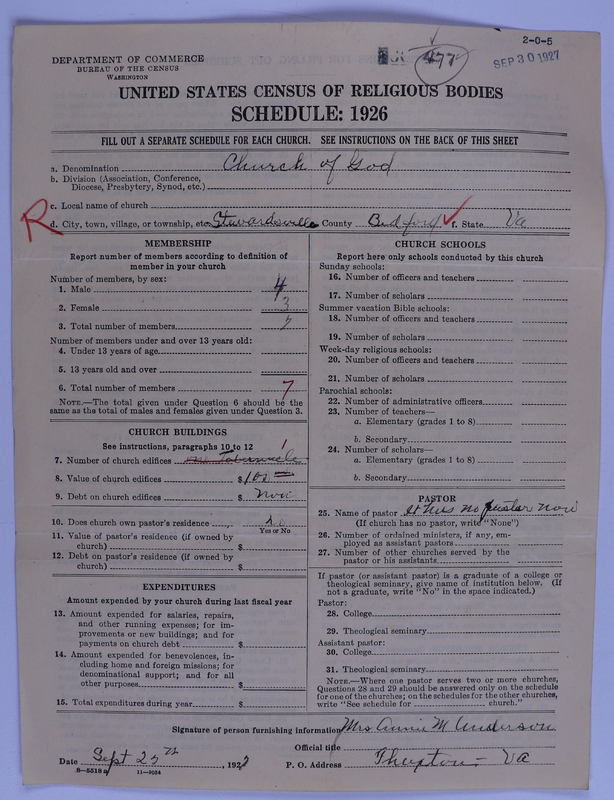 2-0-5
477
SEP 30 1927
DEPARTMENT OF COMMERCE
BUREAU OF THE CENSUS
WASHINGTON
UNITED STATES CENSUS OF RELIGIOUS BODIES
SCHEDULE: 1926
FILL OUT A SEPARATE SCHEDULE FOR EACH CHURCH. SEE INSTRUCTIONS ON THE BACK OF THIS SHEET
a. Denomination Church of God
b. Division (Association, Conference,
Diocese, Presbytery, Synod, etc.)
c. Local name of church
R d. City, town, village, or township, etc. Stewardsville County Bedford f. State Va
MEMBERSHIP
Report number of members according to definition of
member in your church
Number of members, by sex:
1. Male 4
2. Female 3
3. Total number of members 7
Number of members under and over 13 years old:
4. Under 13 years of age
5. 13 years old and over
6. Total number of members 7
NOTE.—The total given under Question 6 should be the
same as the total of males and females given under Question 3.
CHURCH BUILDINGS
See instructions, paragraphs 10 to 12
7. Number of church edifices one Tabernacle 1
8. Value of church edifices $100=
9. Debt on church edifices $ None
10. Does church own pastor's residence No
Yes or No
11. Value of pastor's residence (if owned by
church) $
12. Debt on pastor's residence (if owned by
church) $
EXPENDITURES
Amount expended by your church during last fiscal year
13. Amount expended for salaries, repairs,
and other running expenses; for im-
provements or new buildings; and for
payments on church debt $
14. Amount expended for benevolences, in-
cluding home and foreign missions; for
denominational support; and for all
other purposes $
15. Total expenditures during year $
CHURCH SCHOOLS
Report here only schools conducted by this church
Sunday schools:
16. Number of officers and teachers
17. Number of scholars
Summer vacation Bible schools:
18. Number of officers and teachers
19. Number of scholars
Week-day religious schools:
20. Number of officers and teachers
21. Number of scholars
Parochial schools:
22. Number of administrative officers
23. Number of teachers—
a. Elementary (grades 1 to 8)
b. Secondary
24. Number of scholars—
a. Elementary (grades 1 to 8)
b. Secondary
PASTOR
25. Name of pastor it has no pastor now
(If church has no pastor, write "None")
26. Number of ordained ministers, if any, em-
ployed as assistant pastors
27. Number of other churches served by the
pastor or his assistants
If pastor (or assistant pastor) is a graduate of a college or
theological seminary, give name of institution below. (If
not a graduate, write "No" in the space indicated.)
Pastor:
28. College
29. Theological seminary
Assistant pastor:
30. College
31. Theological seminary
NOTE.—Where one pastor serves two or more churches,
Questions 28 and 29 should be answered only on the schedule
for one of the churches; on the schedules for the other churches,
write "See schedule for church."
Signature of person furnishing information Mrs Annie M Anderson
Official title
Date Sept 25th, 1927 P. O. Address Thaxton — Va
8-5518a 11-9034